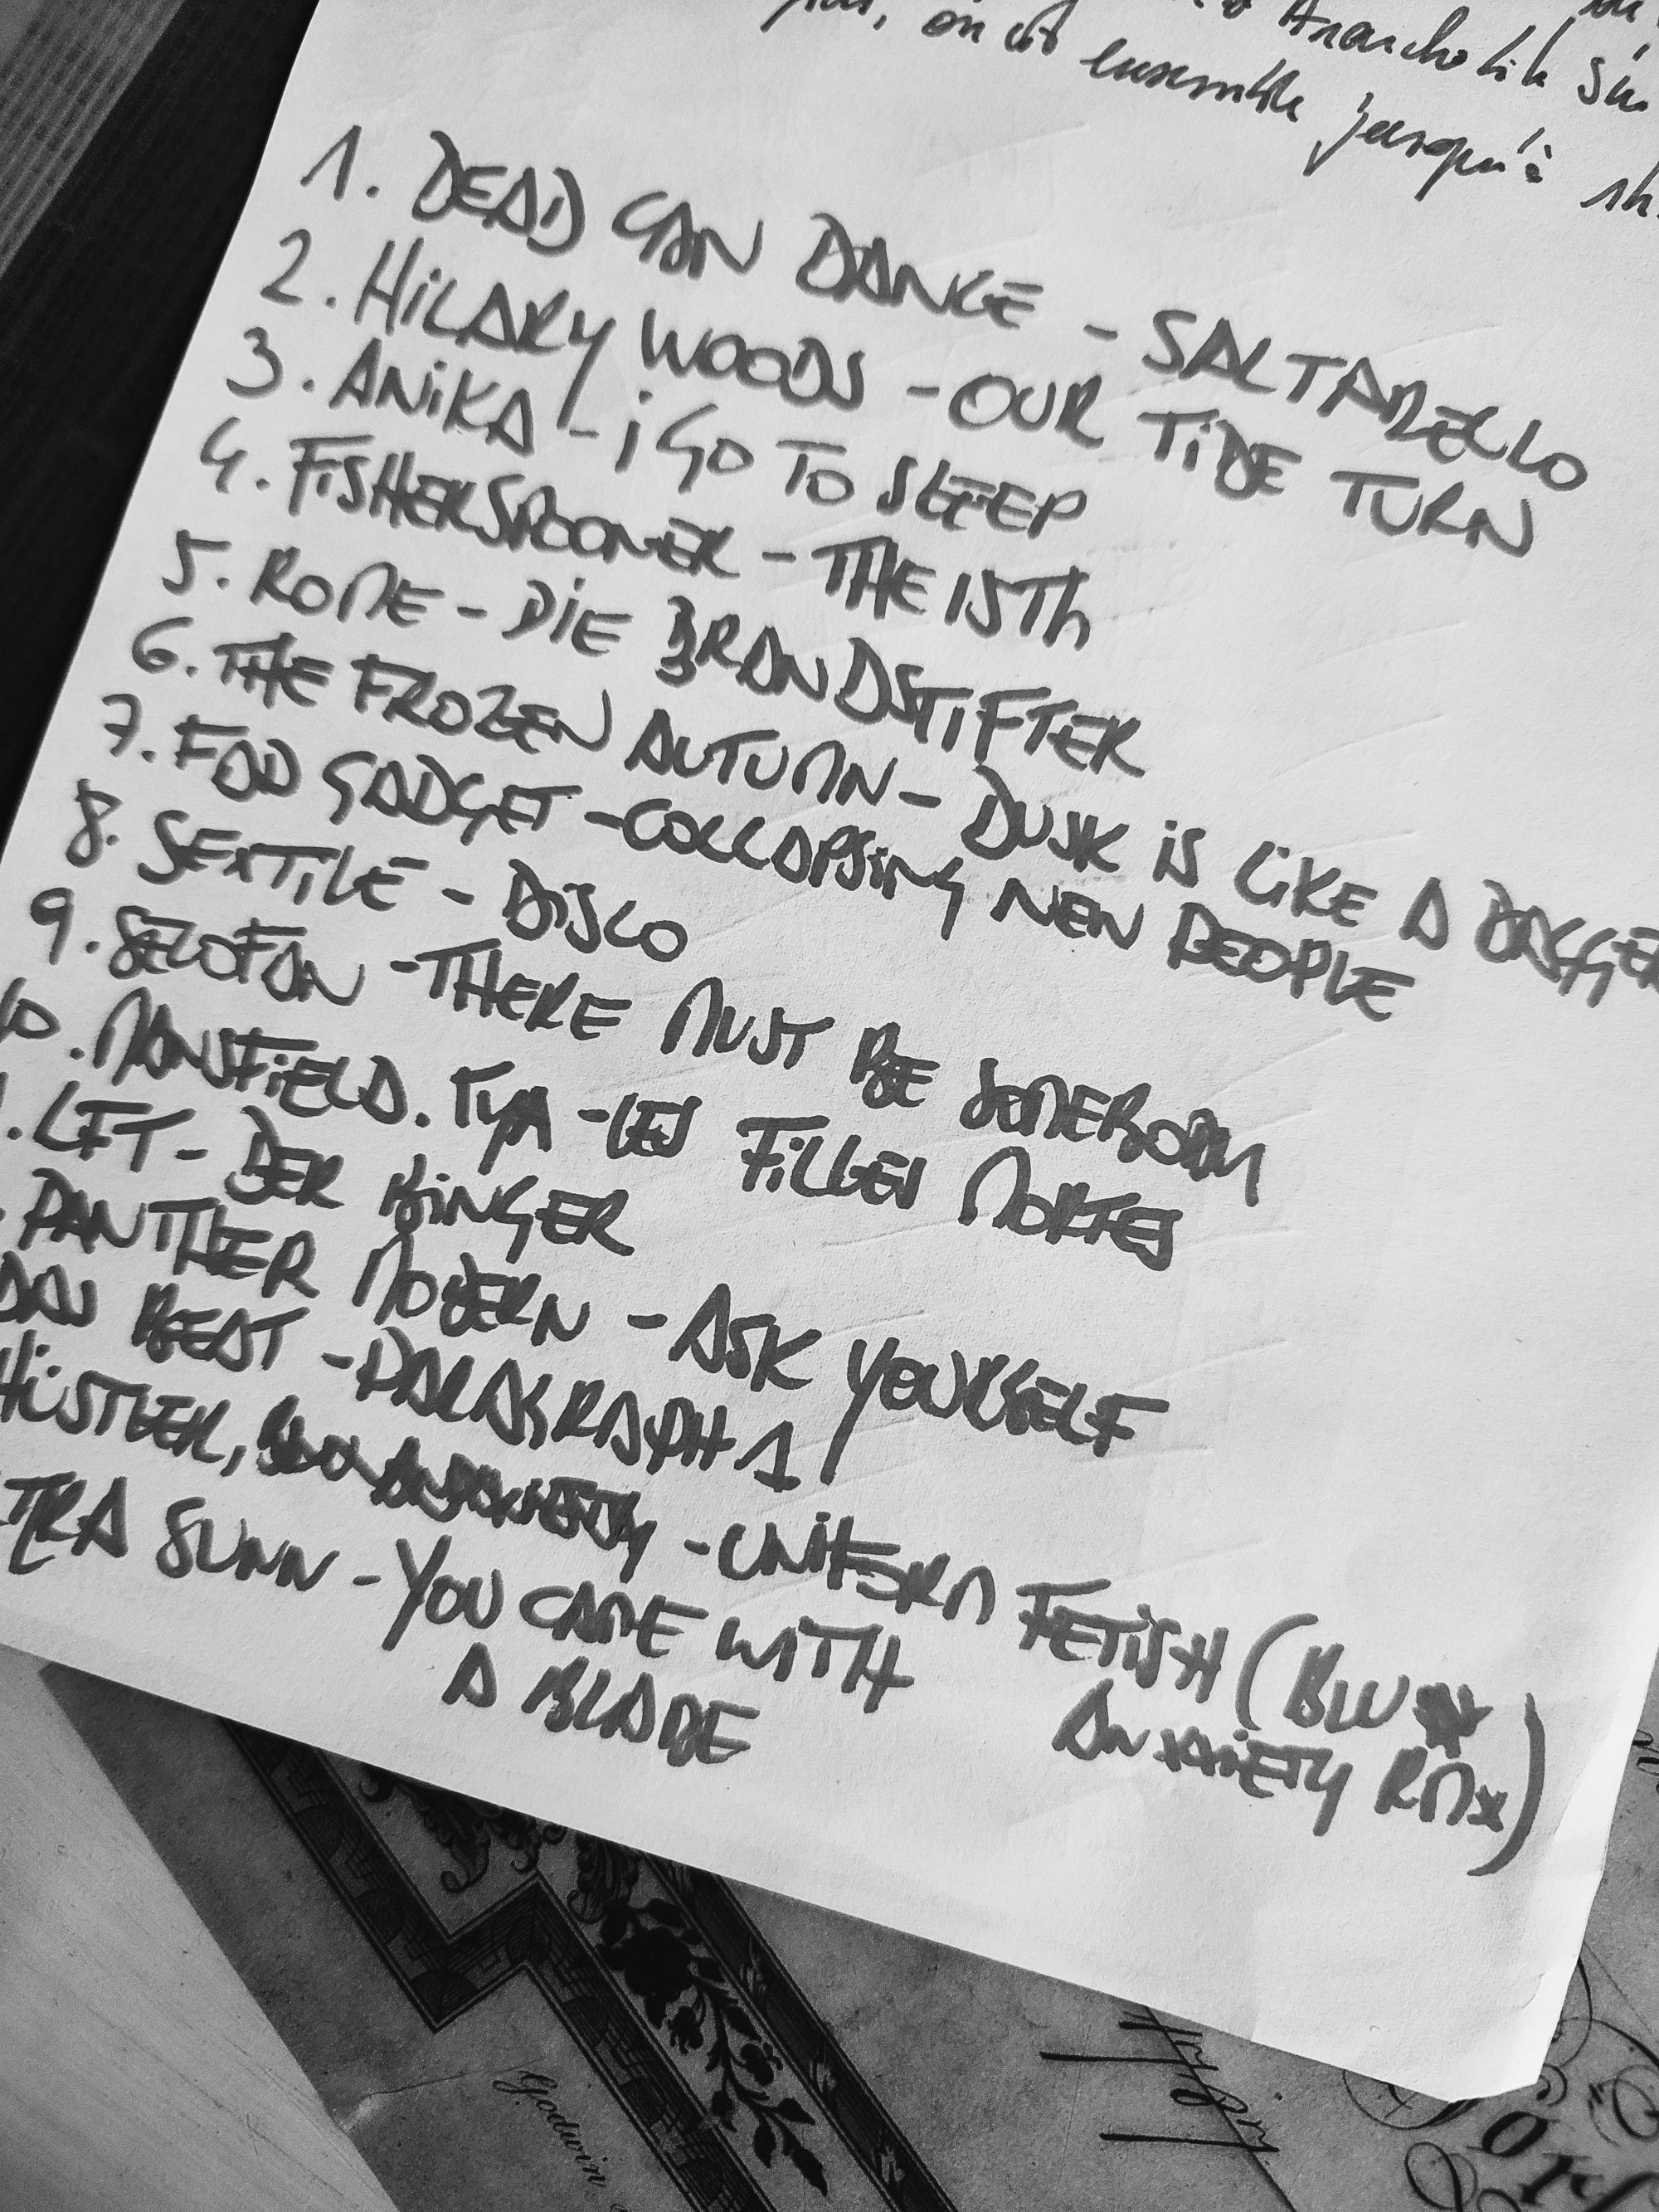 on est ensemble jusqu'à
1. DEAD CAN DANCE - SALTARELLO
2. HiLARY WOODS - OUR TiDE TURN
3. ANiKA - i GO TO SLEEP
4. FiSHERSPOONER - THE 15Th
5. ROME - DiE BRANDSTIFTER
6. THE FROZEN AUTUMN - DUSK iS LiKE A DAGGER
7. FAD GADGET - COLLAPSiNG NEW PEOPLE
8. SEXTiLE - DiSCO
9. SELOFAN - THERE MUST BE SOMEBODY
10. MANSFiELD. TYA - LES FiLLES MORTES
. LFT - DER KiNGER
. PANTHER MODERN - ASK YOURSELF
BEAT - PARAGRAPH 1
HUSTLER, - UNiFORM FETiSH (BLU
ANXXiETY RMX)
TRA SUNN - YOU CAME WITH
A BLADE
Godwin